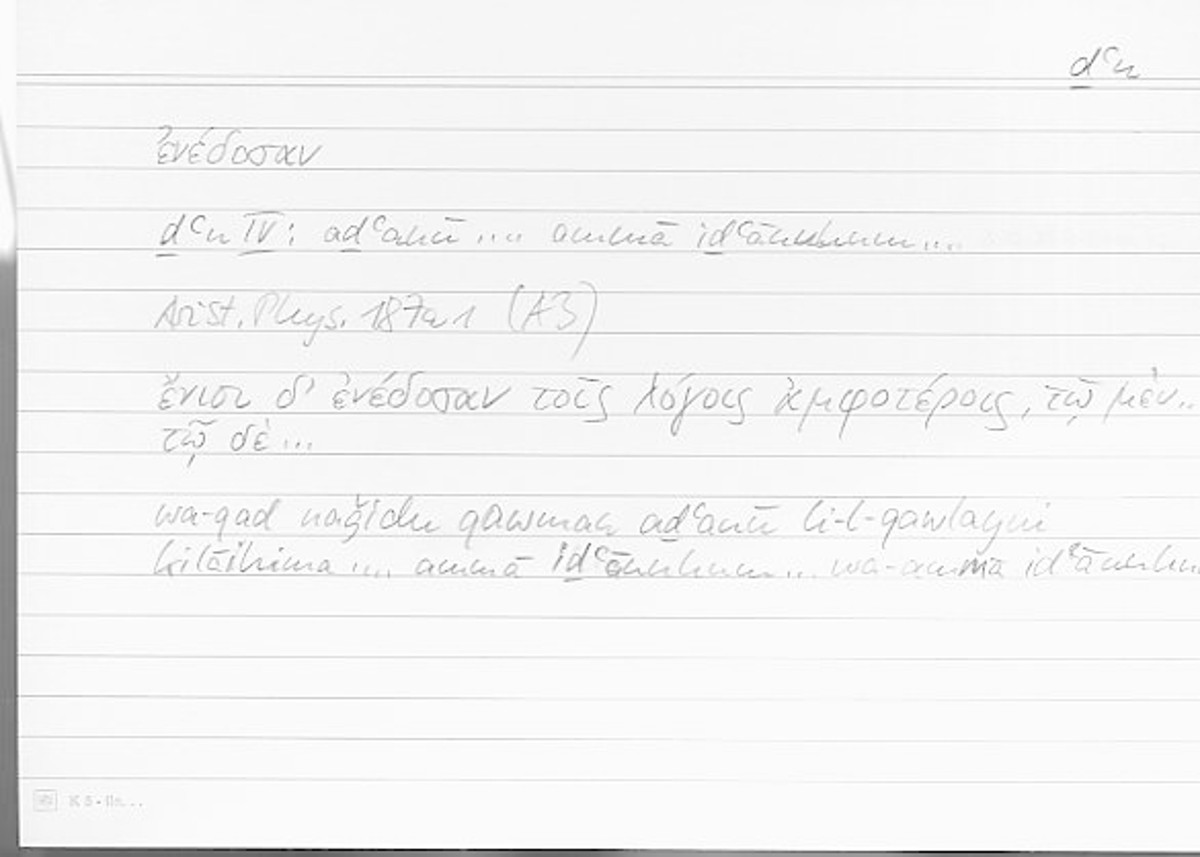 ḏʿn
ἐνέδοσαν
ḏʿn IV: aḏʿanū .... ammā iḏʿānuhum....
Arist. Phys. 187a1 (A3)
ἔνιοι δ' ἐνέδοσαν τοῖς λόγοις ἀμφοτέροις, τῷ μὲν..
τῷ δὲ...
wa-qad naǧidu qawman aḏʿanū li-l-qawlayni
kilāihima .... ammā iḏʿānuhum... wa-ammā iḏʿānuhu..
K 5